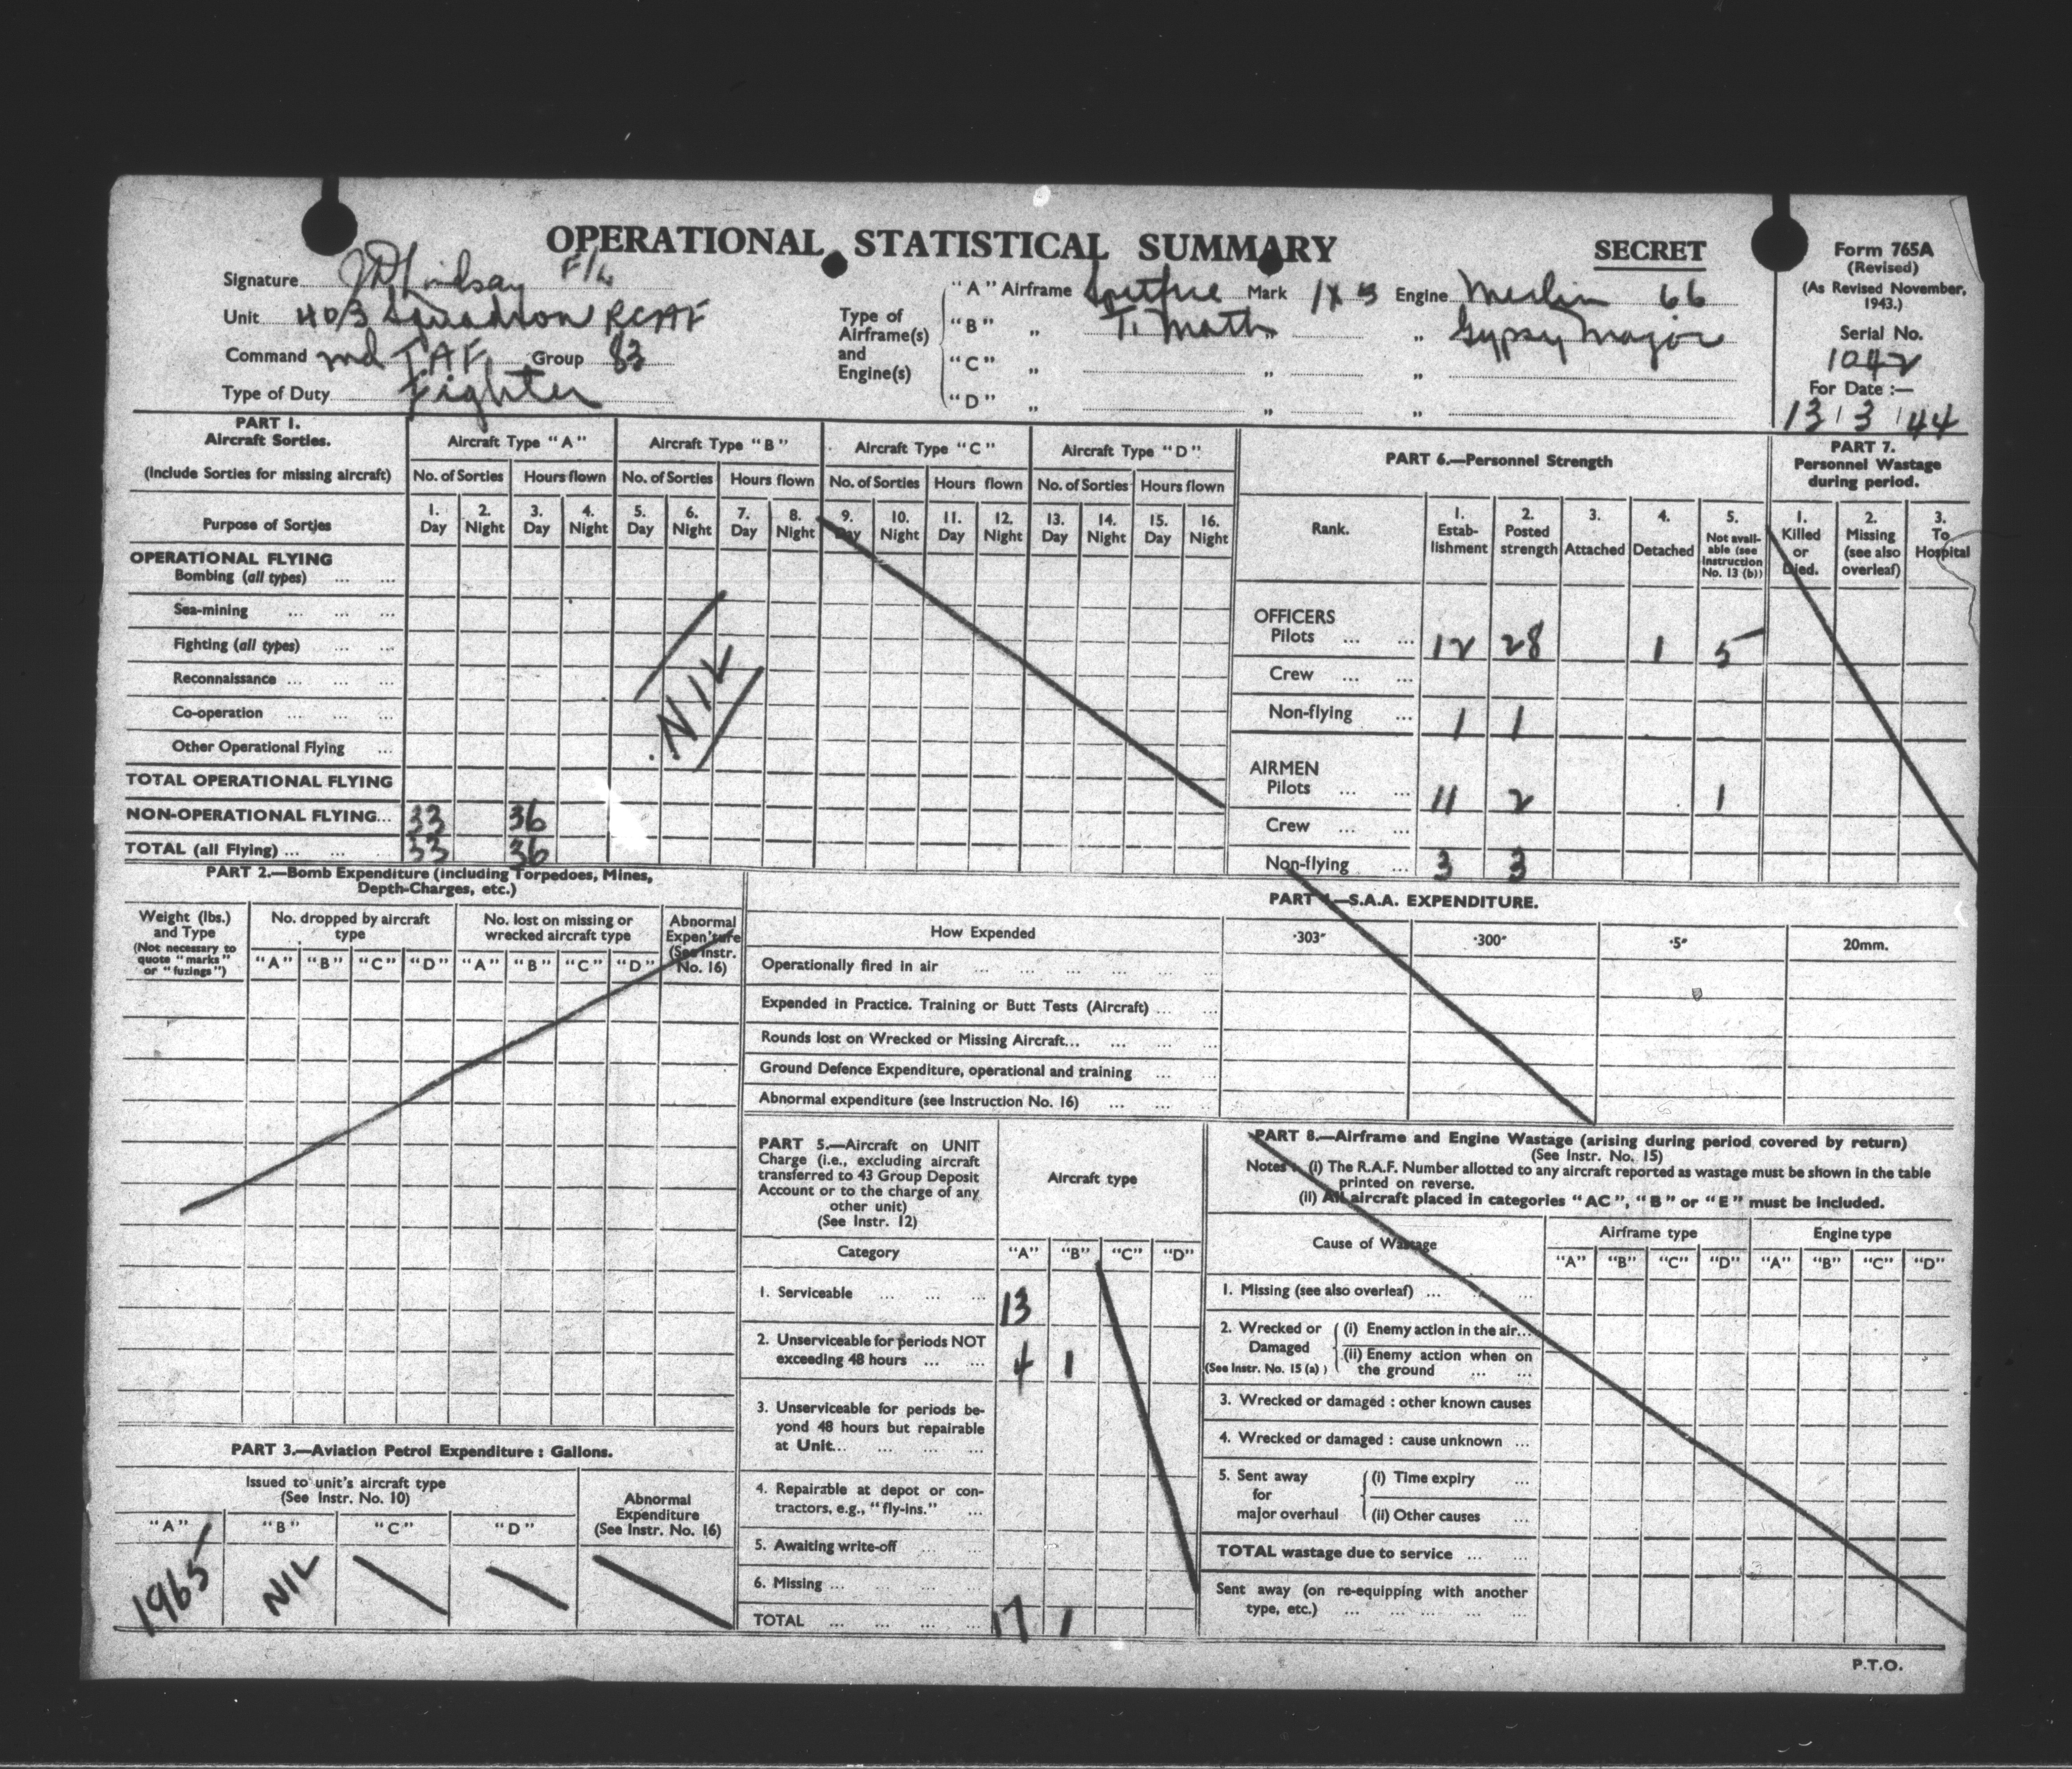 OPERATIONAL STATISTICAL SUMMARY
SECRET
Form 765A
(Revised)
(As Revised November,
1943.)
Serial No.
1042
For Date :—
13 3 44
Signature Lindsay F/L
Unit 403 Squadron RCAF
Command TAF Group 83
Type of Duty Fighter
Type of
Airframe(s)
and
Engine(s)
"A" Airframe Spitfire Mark IX Engine Merlin 66
"B" „ T. Moth „ „ Gypsy Major
"C" „ „ „
"D" „ „ „
PART 1.
Aircraft Sorties.
(Include Sorties for missing aircraft)
Aircraft Type "A" Aircraft Type "B" Aircraft Type "C" Aircraft Type "D"
No. of Sorties Hours flown No. of Sorties Hours flown No. of Sorties Hours flown No. of Sorties Hours flown
Purpose of Sorties
1. Day 2. Night 3. Day 4. Night 5. Day 6. Night 7. Day 8. Night 9. Day 10. Night 11. Day 12. Night 13. Day 14. Night 15. Day 16. Night
OPERATIONAL FLYING
Bombing (all types) ... ...
Sea-mining ... ... ...
Fighting (all types) ... ...
Reconnaissance ... ... ...
Co-operation ... ... ...
Other Operational Flying ...
NIL
TOTAL OPERATIONAL FLYING
NON-OPERATIONAL FLYING... 33 36
TOTAL (all Flying) ... ... ... 33 36
PART 6.—Personnel Strength
Rank.
1. Estab-lishment 2. Posted strength 3. Attached 4. Detached 5. Not avail-able (see Instruction No. 13 (b))
OFFICERS
Pilots ... ... 12 28 1 5
Crew ... ...
Non-flying ... 1 1
AIRMEN
Pilots ... ... 11 2 1
Crew ... ...
Non-flying ... 3 3
PART 7.
Personnel Wastage
during period.
1. Killed or Died. 2. Missing (see also overleaf) 3. To Hospital
PART 2.—Bomb Expenditure (including Torpedoes, Mines,
Depth-Charges, etc.)
Weight (lbs.)
and Type
(Not necessary to
quote "marks"
or "fuzings")
No. dropped by aircraft
type
No. lost on missing or
wrecked aircraft type
Abnormal
Expen'ture
(See Instr.
No. 16)
"A" "B" "C" "D" "A" "B" "C" "D"
PART 4.—S.A.A. EXPENDITURE.
How Expended ·303" ·300" ·5" 20mm.
Operationally fired in air ... ... ... ... ...
Expended in Practice. Training or Butt Tests (Aircraft) ... ...
Rounds lost on Wrecked or Missing Aircraft... ... ... ...
Ground Defence Expenditure, operational and training ... ...
Abnormal expenditure (see Instruction No. 16) ... ... ...
PART 3.—Aviation Petrol Expenditure : Gallons.
Issued to unit's aircraft type
(See Instr. No. 10)
Abnormal
Expenditure
(See Instr. No. 16)
"A" "B" "C" "D"
1965 NIL
PART 5.—Aircraft on UNIT
Charge (i.e., excluding aircraft
transferred to 43 Group Deposit
Account or to the charge of any
other unit)
(See Instr. 12)
Aircraft type
Category "A" "B" "C" "D"
1. Serviceable ... ... ... 13
2. Unserviceable for periods NOT
exceeding 48 hours ... ... 4 1
3. Unserviceable for periods be-
yond 48 hours but repairable
at Unit... ... ... ...
4. Repairable at depot or con-
tractors, e.g., "fly-ins." ...
5. Awaiting write-off ... ...
6. Missing ... ... ... ...
TOTAL ... ... ... ... 17 1
PART 8.—Airframe and Engine Wastage (arising during period covered by return)
(See Instr. No. 15)
Notes : (i) The R.A.F. Number allotted to any aircraft reported as wastage must be shown in the table
printed on reverse.
(ii) All aircraft placed in categories "AC", "B" or "E" must be included.
Cause of Wastage Airframe type Engine type
"A" "B" "C" "D" "A" "B" "C" "D"
1. Missing (see also overleaf) ... ... ...
2. Wrecked or
Damaged
(See Instr. No. 15 (a) )
(i) Enemy action in the air...
(ii) Enemy action when on
the ground ... ...
3. Wrecked or damaged : other known causes
4. Wrecked or damaged : cause unknown ...
5. Sent away
for
major overhaul
(i) Time expiry ...
(ii) Other causes ...
TOTAL wastage due to service ... ...
Sent away (on re-equipping with another
type, etc.) ... ... ... ... ...
P.T.O.